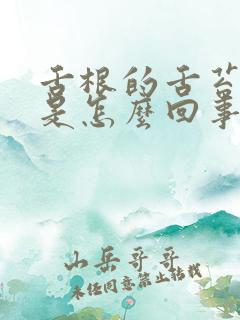 舌根的舌苔
是怎麼回事
山岳哥哥
未经同意禁止转载